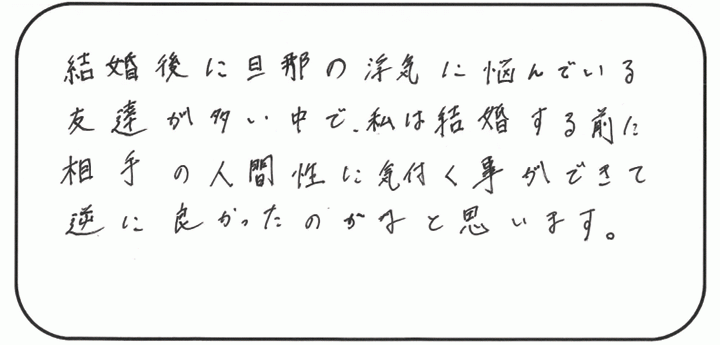 結婚後に旦那の浮気に悩んでいる
友達が多い中で、私は結婚する前に
相手の人間性に気付く事ができて
逆に良かったのかなと思います。